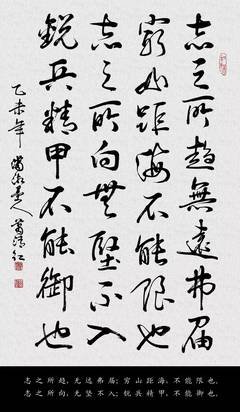 志之所趨無遠弗届
窮山距海不能限也
志之所向無堅不入
銳兵精甲不能御也
乙未年
志之所趋，无远弗届；穷山距海，不能限也。
志之所向，无坚不入；锐兵精甲，不能御也。